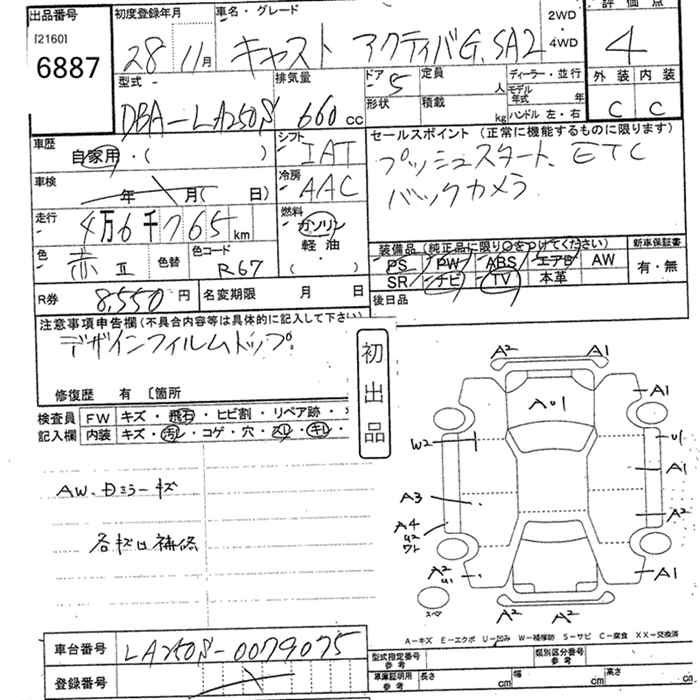 出品番号 初度登録年月 車名・グレード 2WD・4WD 評価点
[2160]
6887 28 11月 キャスト アクティバG.SA2 4
型式 排気量 ドア 5 定員 人 ディーラー・並行 外装 内装
DBA-LA250S 660cc 形状 積載 kg モデル年式 年 ハンドル 左・右 C C
車歴 シフト セールスポイント (正常に機能するものに限ります)
自家用・( ) IAT プッシュスタート、ETC
車検 年 月( 日) 冷房 AAC バックカメラ
走行 4万6千765km 燃料 ガソリン 軽油 ・( )
色 赤II 色替 色コード R67
装備品 (純正品に限り○をつけてください) 新車保証書
PS PW ABS エアB AW 有・無
SR ナビ TV 本革
R券 8,550円 名変期限 月 日 後日品
注意事項申告欄(不具合内容等は具体的に記入して下さい)
デザインフィルムトップ
修復歴 有 〔箇所
初出品
検査員記入欄 FW キズ・飛石・ヒビ割・リペア跡・
内装 キズ・汚レ・コゲ・穴・スレ・キレ・
AW、Dミラーキズ
各キズ凹補修
A2 A1
AU1 A1
W2 U1
A1
A3 A2
A4
U2
ワレ
A2
U1 A1
スペア
A2 A2
A-キズ E-エクボ U-凹み W-補修跡 S-サビ C-腐食 XX-交換済
車台番号 LA250S-0079075 型式指定番号 参考 類別区分番号 参考
登録番号 車庫証明用 参考 長さ cm 幅 cm 高さ cm